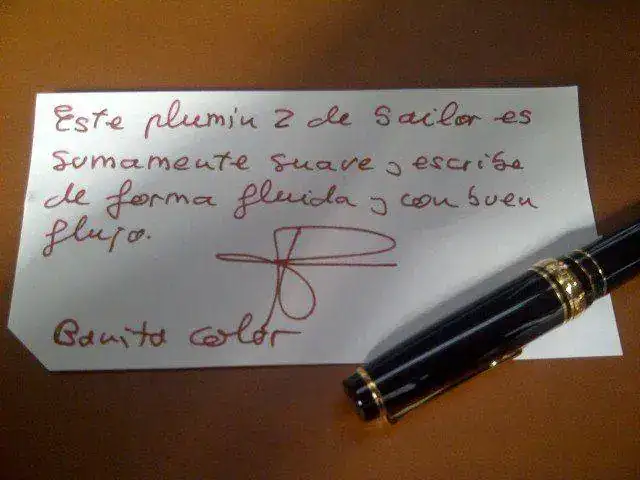 Este plumin Z de Sailor es
sumamente suave y escribe
de forma fluida y con buen
flujo.
Bonito color